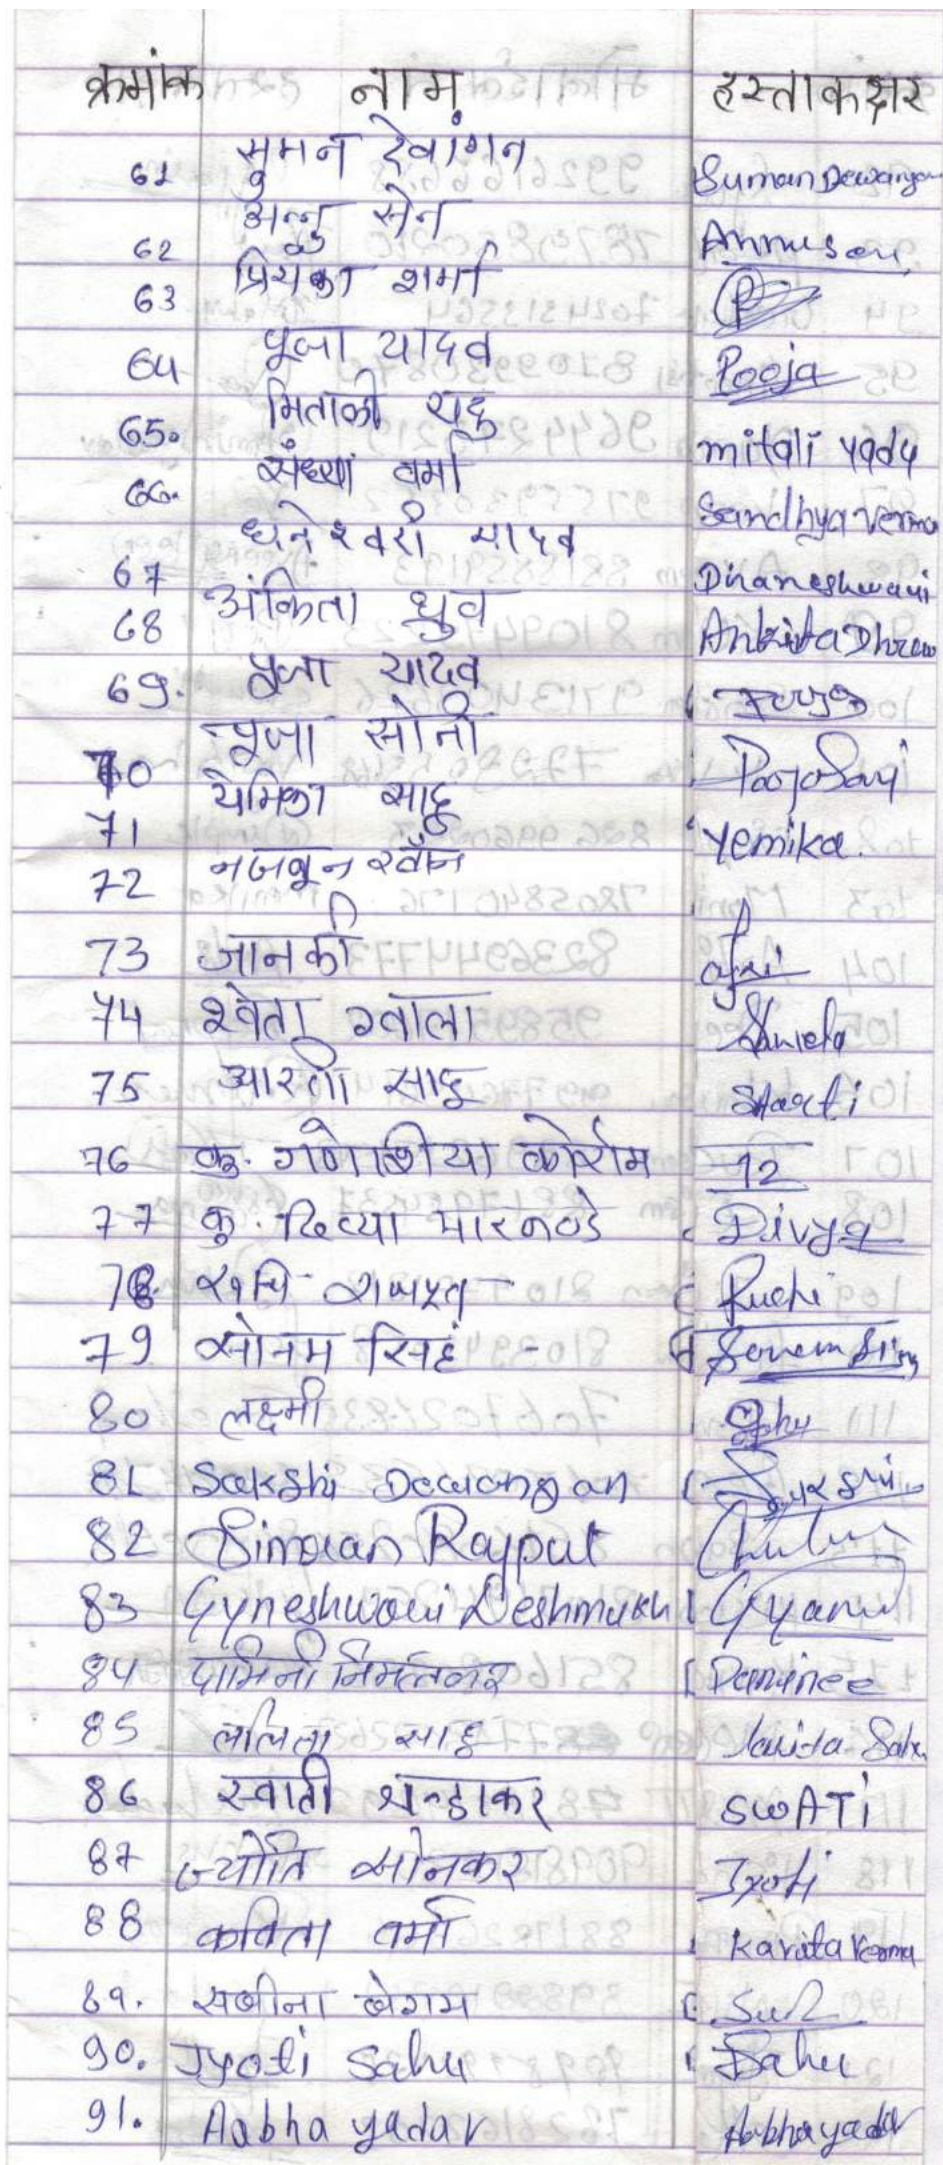 क्रमांक नाम हस्ताक्षर
61 सुमन देवांगन Suman Dewangan
62 अन्नु सेन Annu sen
63 प्रियंका शर्मा
64 पूजा यादव Pooja
65. मिताली यदु mitali yadu
66. संध्या वर्मा Sandhya verma
67 धनेश्वरी यादव Dhaneshwari
68 अंकिता ध्रुव Ankita Dhruw
69. पूजा यादव Pooja
70 पूजा सोनी Pooja Soni
71 येमिका साहू Yemika.
72 नजबुन खॉन
73 जानकी
74 श्वेता ग्वाला Shweta
75 आरती साहू Aarti
76 कु. गणेशीया कोर्राम
77 कु. दिव्या मारकण्डे Divya
78. रुचि राजपूत Ruchi
79 सोनम सिंह - Sonam Sing
80 लक्ष्मी
81 Sakshi Dewangan Sakshi
82 Simran Rajput
83 Gyneshwari Deshmukh Gyanu
84 दामिनी निर्मलकर Daminee
85 ललिता साहू Lalita Sahu
86 स्वाती भन्डाकर SWATi
87 ज्योति सोनकर Jyoti
88 कविता वर्मा Kavita Verma
89. सबीना बेगम
90. Jyoti Sahu Sahu
91. Aabha yadav Aabha yadav